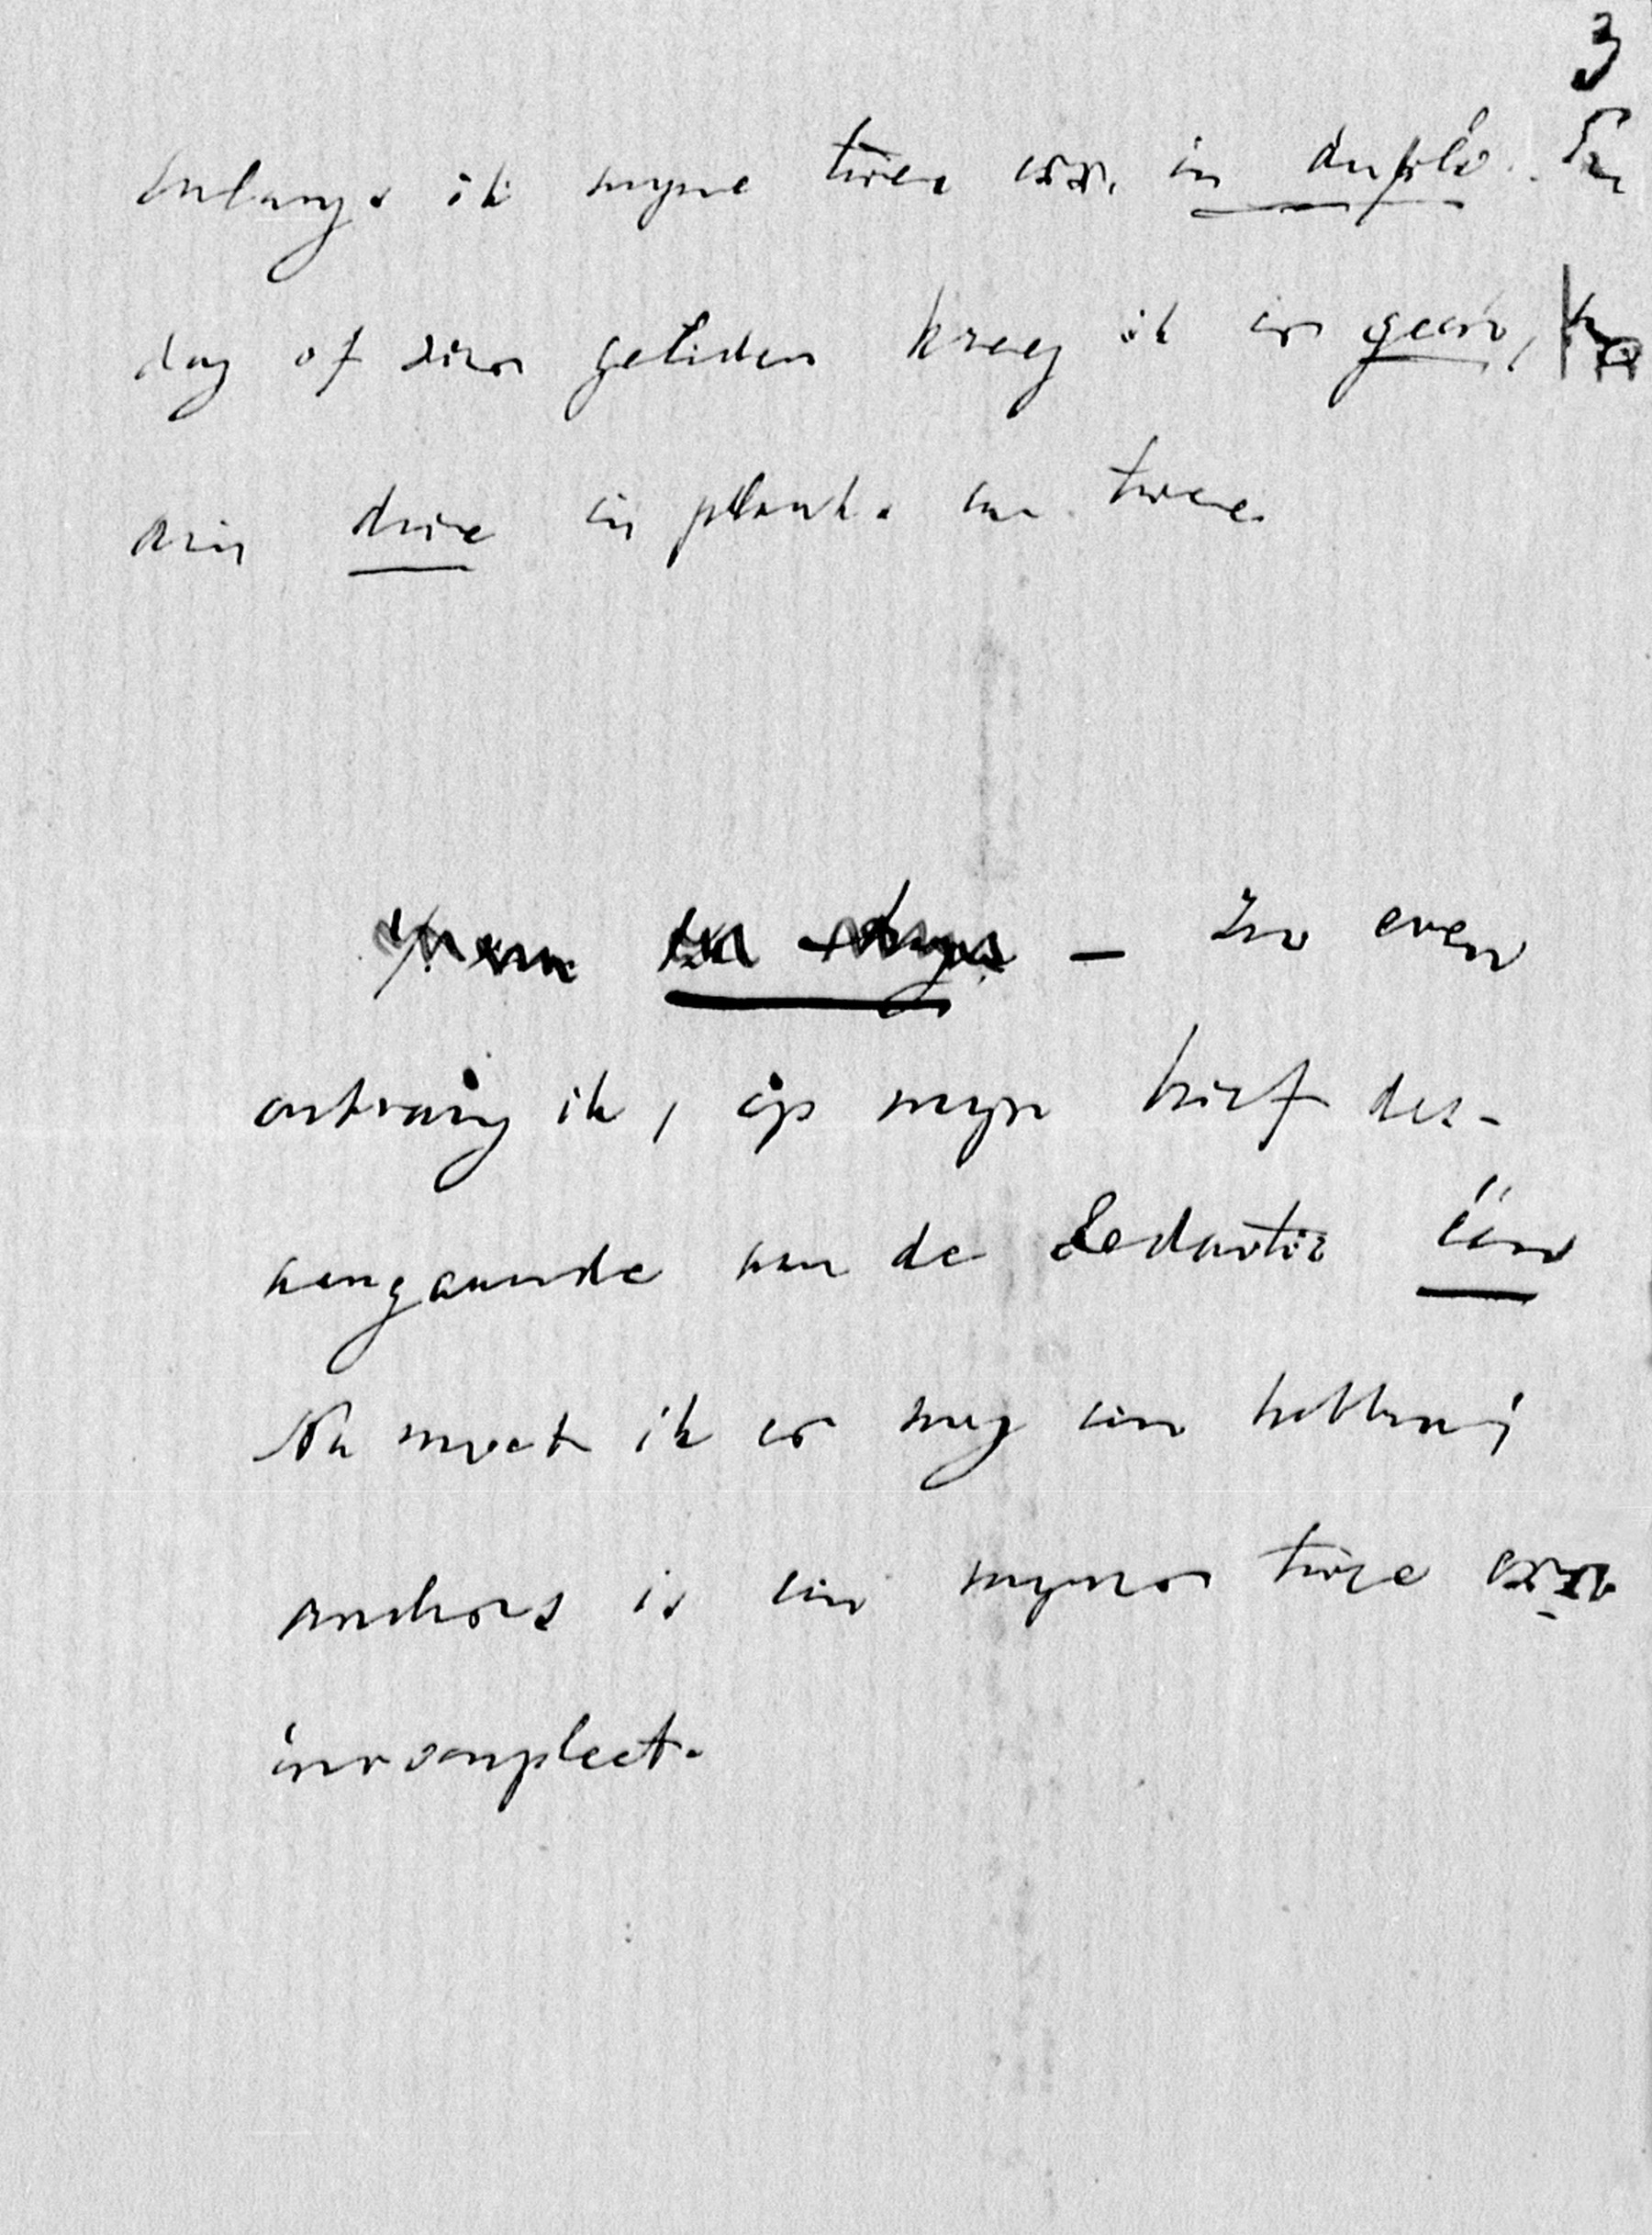 3
Onlangs ik myne twee exx. in duplo. En
dag of zien geleden kreeg ik er geen,
din drie in plaats van twee.
— Zoo even
ontvang ik, op myn brief des-
aangaande aan de Redactie één
Nu moet ik er nog een hebben;
anders is een myner twee exx.
incompleet.